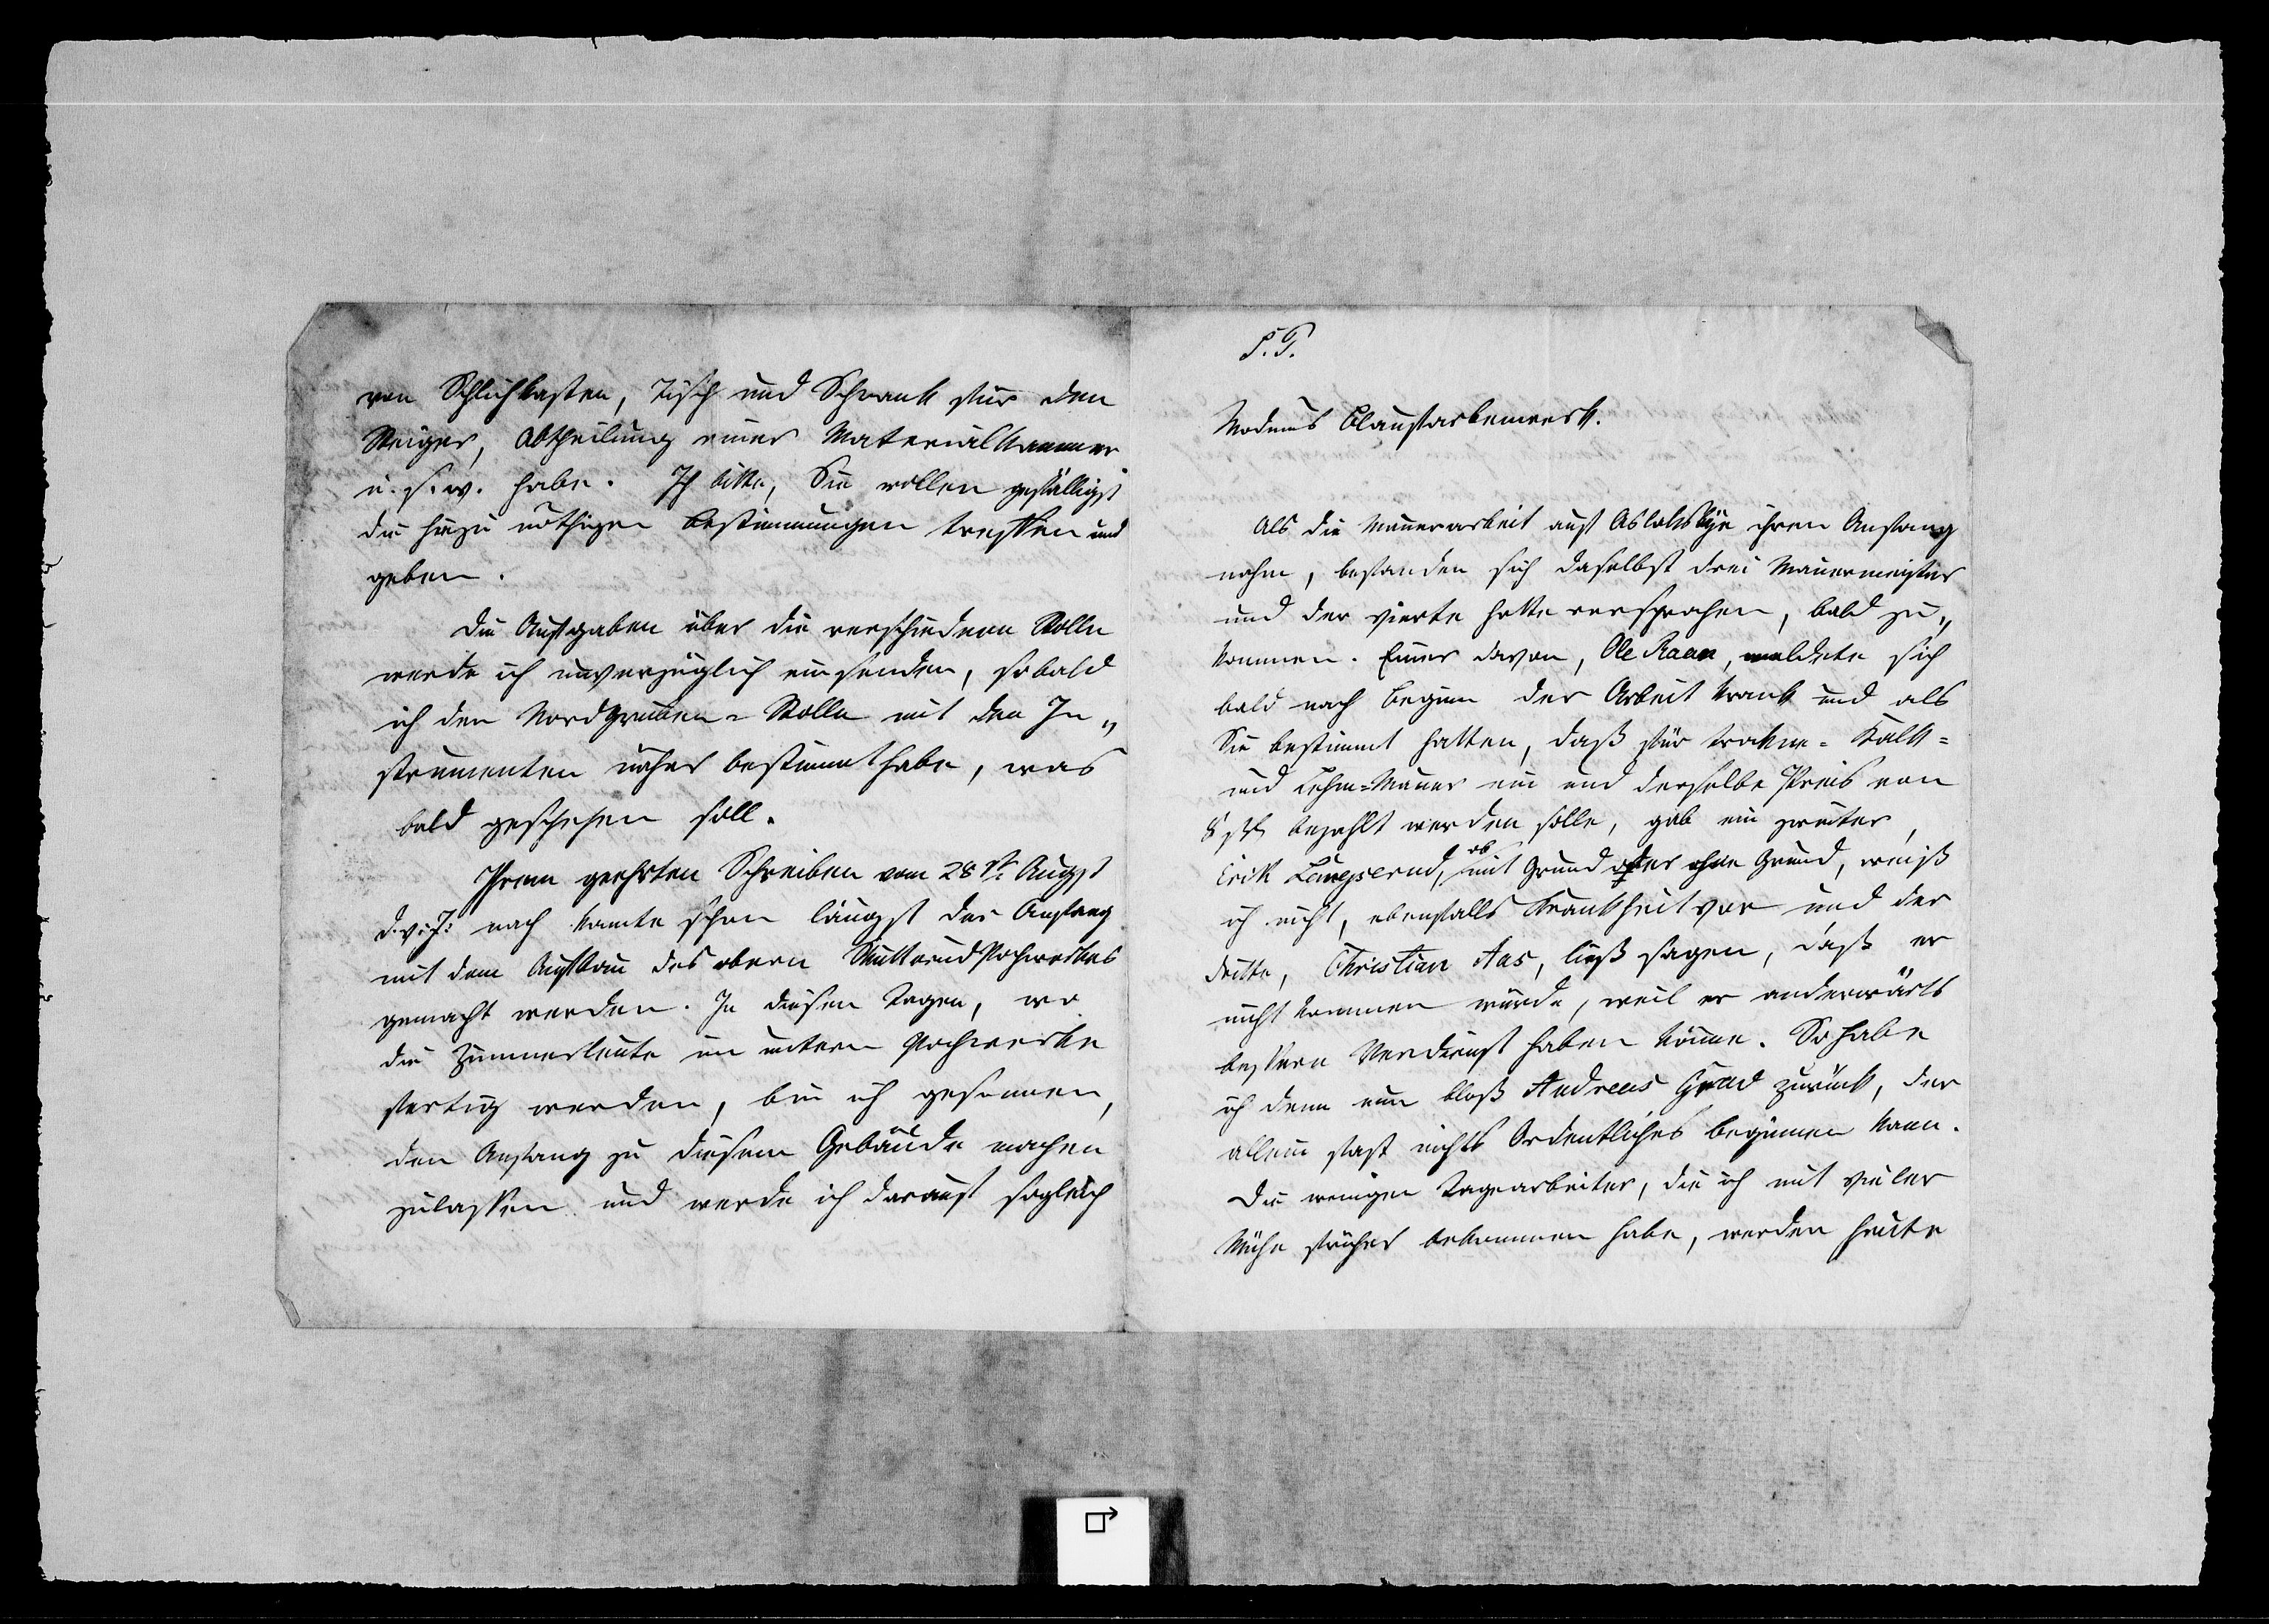 von Schlichkasten, Tisch und Schrank für den
Steiger, Abtheilung einer Materialkammer
u. s. w. habe. Ich bitte, Sie wollen gefälligst
die hiezu nöthigen Bestimmungen treffen und
geben.
Die Aufgaben über die verschiedenen Stolln
werde ich unverzüglich einsenden, sobald
ich den Nordgruben-Stolln mit den In„
strumenten näher bestimmt habe, was
bald geschehen soll.
Ihrem geehrten Schreiben vom 28 st: Augst
d. v. J: nach konnte schon längst der Anfang
mit dem Aufbau des obern Skutterud Pochwerkes
gemacht werden. In diesen Tagen, wo
die Zimmerleute im untern Pochwerke
fertig werden, bin ich gesonnen,
den Anfang zu diesem Gebäude machen
zulassen und werde ich darauf sogleich
S. T.
Modums Blaufarbenwerk.
Als die Mauerarbeit auf Aslakskye ihren Anfang
nahm, befanden sich daselbst drei Mauermeister
und der vierte hatte versprochen, bald zu„
kommen. Einer davon, Ole Raaen, meldete sich
bald nach Beginn der Arbeit krank und als
Sie bestimmt hatten, daß für trokne- Kalk-
und Lehm-Mauer ein und derselbe Preis von
8 ß bezahlt werden solle, gab ein zweiter,
Erik Langserud, ob mit Grund oder ohne Grund, weiß
ich nicht, ebenfalls Krankheit vor und der
dritte, Christian Aas, ließ sagen, daß er
nicht kommen würde, weil er anderwärts
bessern Verdienst haben könne. So habe
ich denn nun bloß Andreas Grad zurück, der
allein fast nichts Ordentliches beginnen kann.
Die wenigen Tagearbeiter, die ich mit vieler
Mühe früher bekommen habe, werden heute